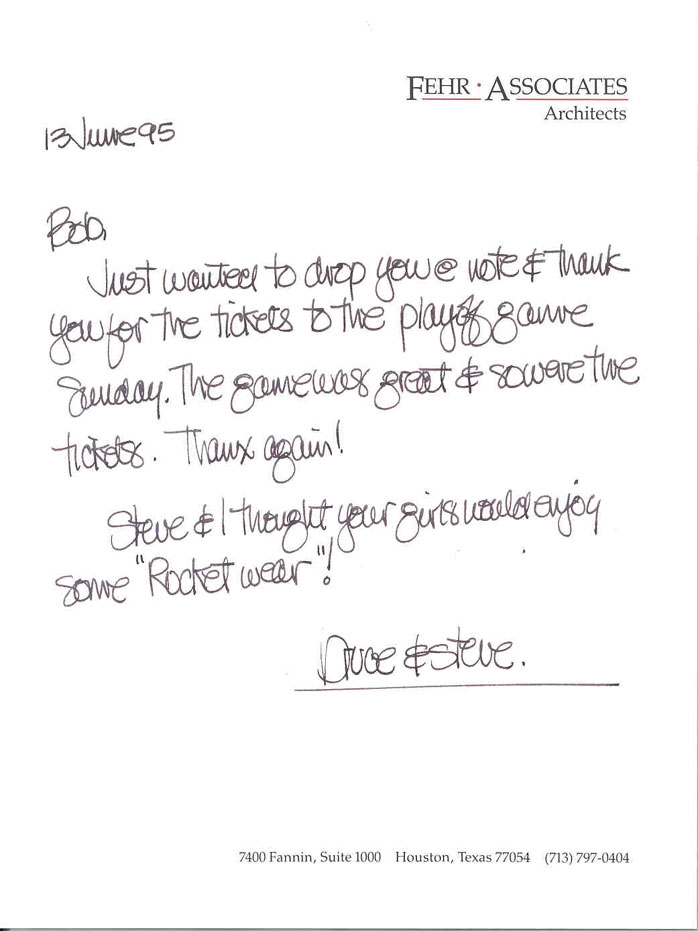 FEHR · ASSOCIATES
Architects
13 June 95
Bob,
Just wanted to drop you a note & thank
you for the tickets to the playoff game
Sunday. The game was great & so were the
tickets. Thanx again!
Steve & I thought your girls would enjoy
some "Rocket wear"!
& Steve.
7400 Fannin, Suite 1000 Houston, Texas 77054 (713) 797-0404